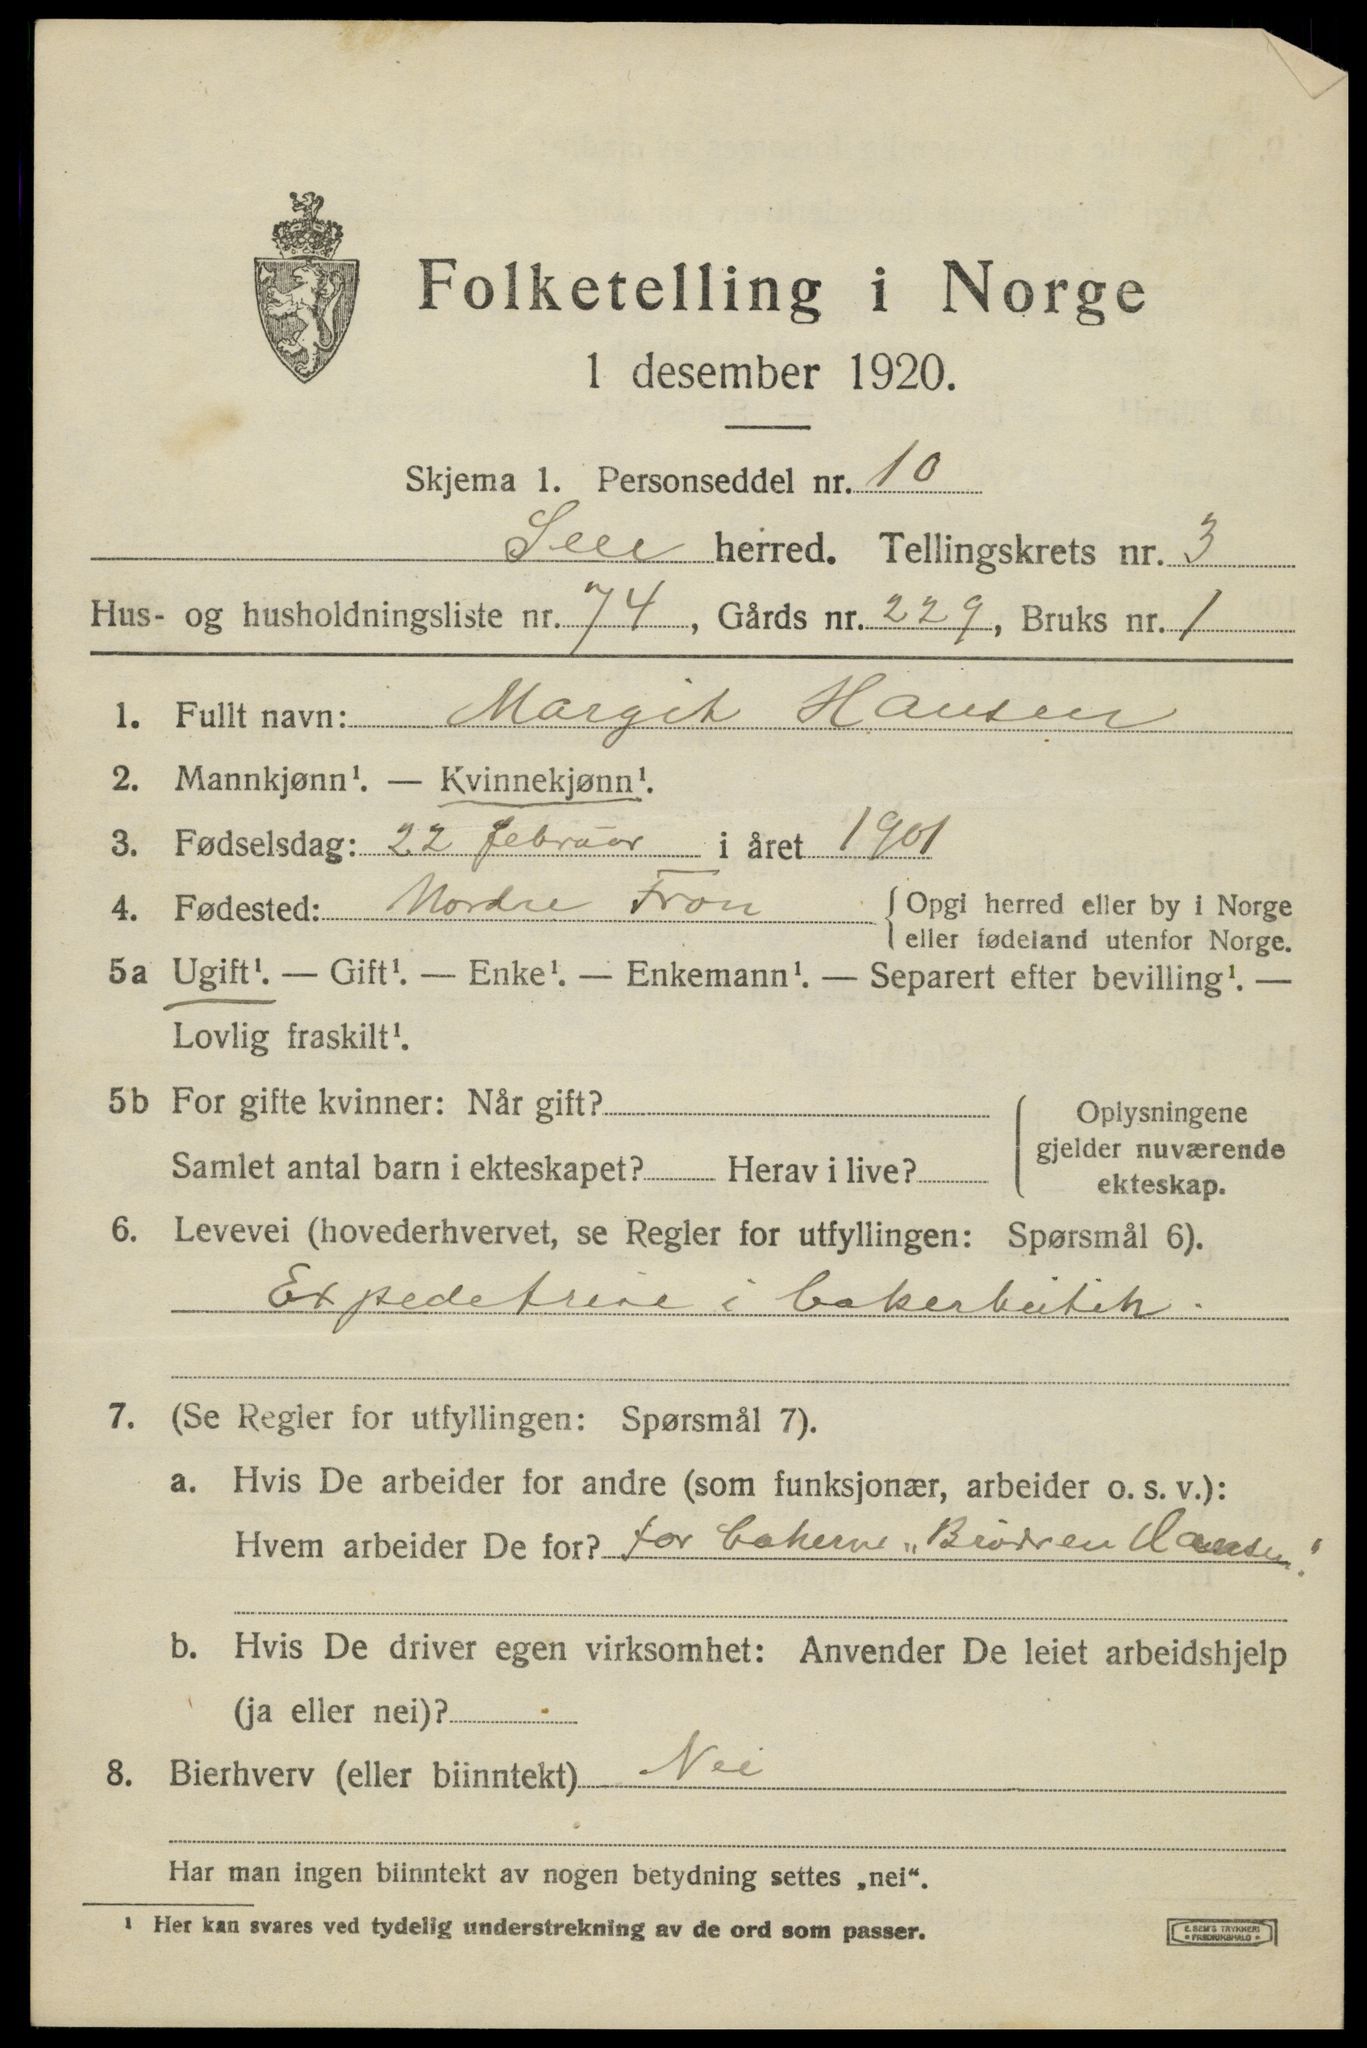 Folketelling i Norge
1 desember 1920.
Skjema 1. Personseddel nr. 10
herred. Tellingskrets nr. 3
Hus- og husholdningsliste nr. 74, Gårds nr. 229, Bruks nr. 1
1. Fullt navn: Margit Hansen
2. Mannkjønn¹. — Kvinnekjønn¹.
3. Fødselsdag: 22 februar i året 1901
4. Fødested: Nordre Fron { Opgi herred eller by i Norge
eller fødeland utenfor Norge.
5a Ugift¹. — Gift¹. — Enke¹. — Enkemann¹. — Separert efter bevilling¹. —
Lovlig fraskilt¹.
5b For gifte kvinner: Når gift?
Samlet antal barn i ekteskapet? Herav i live?
Oplysningene
gjelder nuværende
ekteskap.
6. Levevei (hovederhvervet, se Regler for utfyllingen: Spørsmål 6).
Expedetrise i bakerbutik.
7. (Se Regler for utfyllingen: Spørsmål 7).
a. Hvis De arbeider for andre (som funksjonær, arbeider o. s. v.):
Hvem arbeider De for? for bakerne „Brødren Hansen."
b. Hvis De driver egen virksomhet: Anvender De leiet arbeidshjelp
(ja eller nei)?
8. Bierhverv (eller biinntekt) Nei
Har man ingen biinntekt av nogen betydning settes „nei“.
¹ Her kan svares ved tydelig understrekning av de ord som passer.
E. SEM'S TRYKKERI
• FREDRIKSHALD •